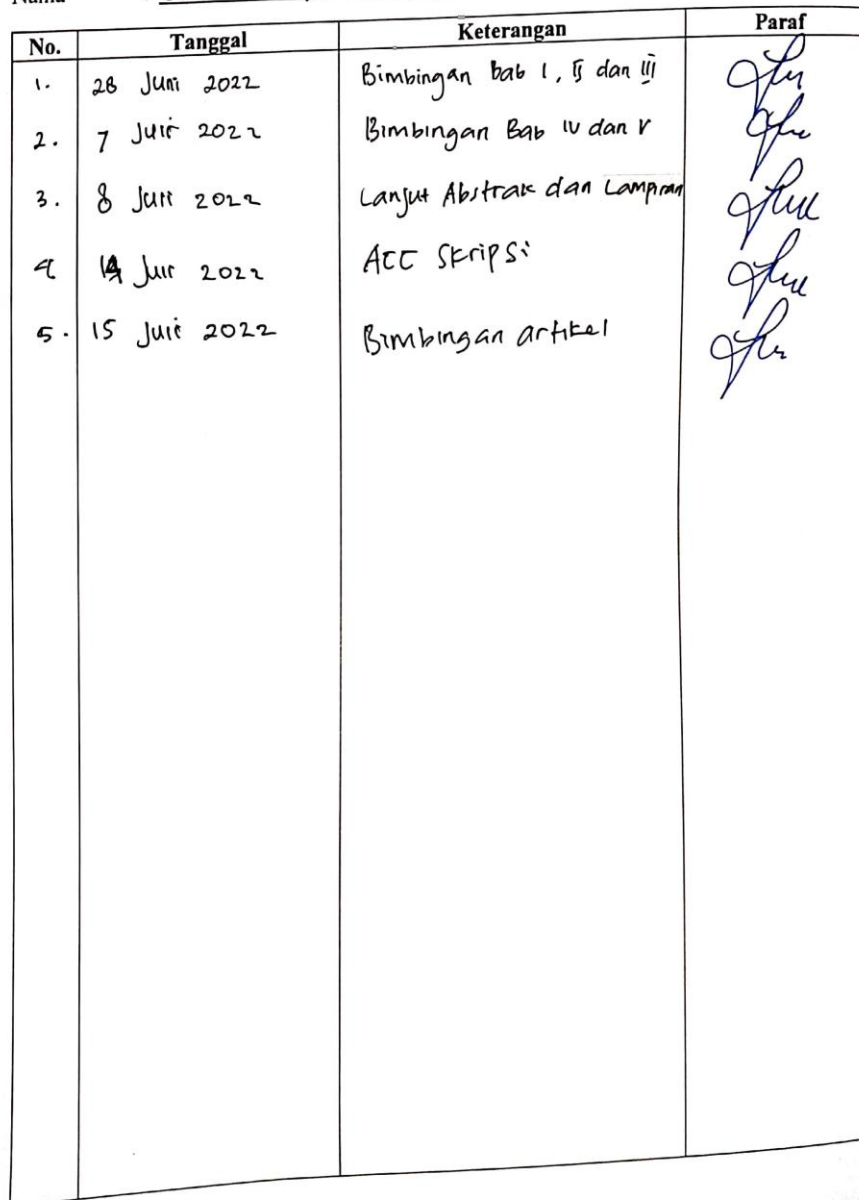 Nama
No. Tanggal Keterangan Paraf
1. 28 Juni 2022 Bimbingan bab I, II dan III
2. 7 Juli 2022 Bimbingan Bab IV dan V
3. 8 Juli 2022 Lanjut Abstrak dan Lampiran
4 14 Juli 2022 ACC Skripsi
5. 15 Juli 2022 Bimbingan artikel